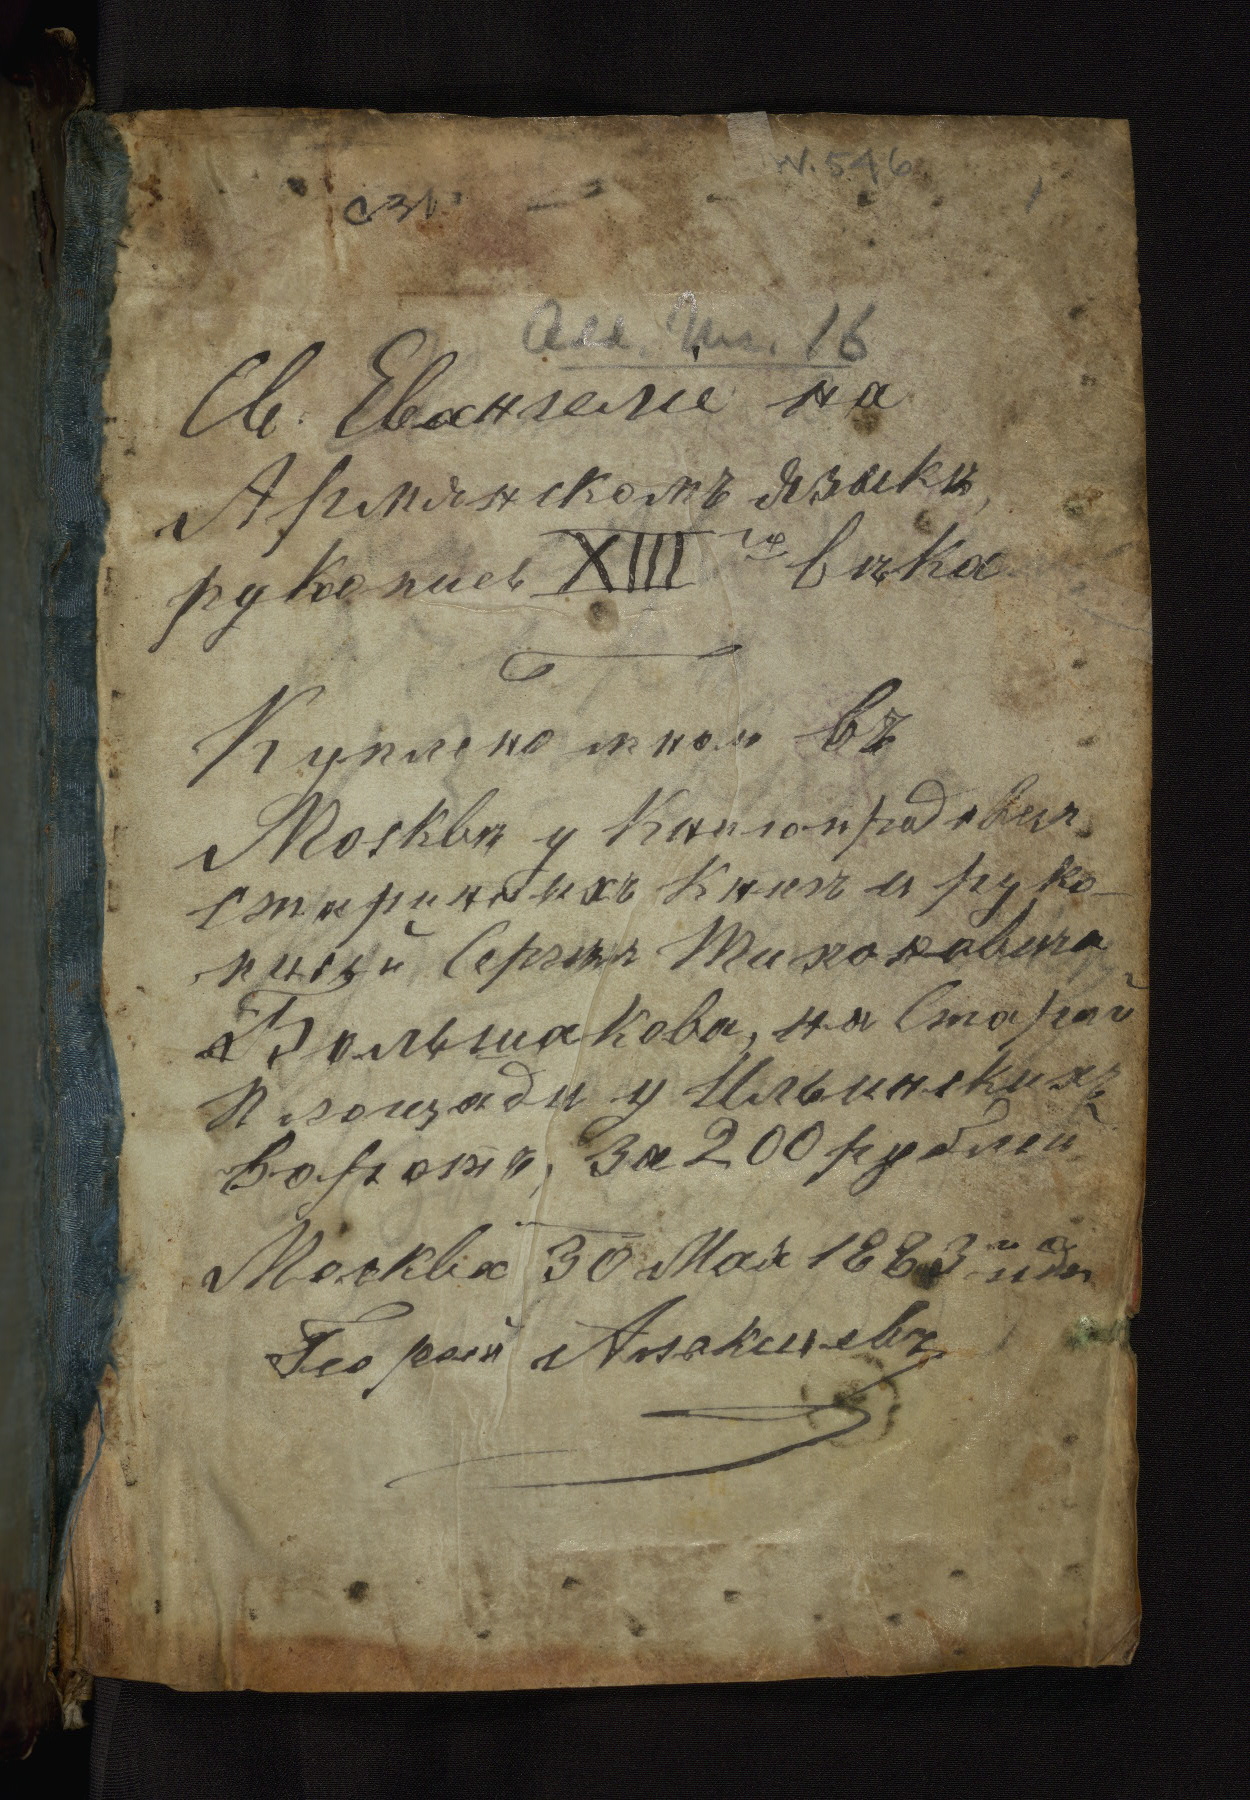 W.546
1
Add. Ms. 16
Св. Евангелiе на
Армянскомъ языкѣ,
рукопись XIII го вѣка
Куплено мною въ
Москвѣ у Книгопродавца
старинныхъ Книгъ и руко-
писей Сергѣя Тихоновича
Большакова, на Старой
площади у Ильинскихъ
воротъ, за 200 рублей
Москва 30 Мая 1883 года
Георгiй